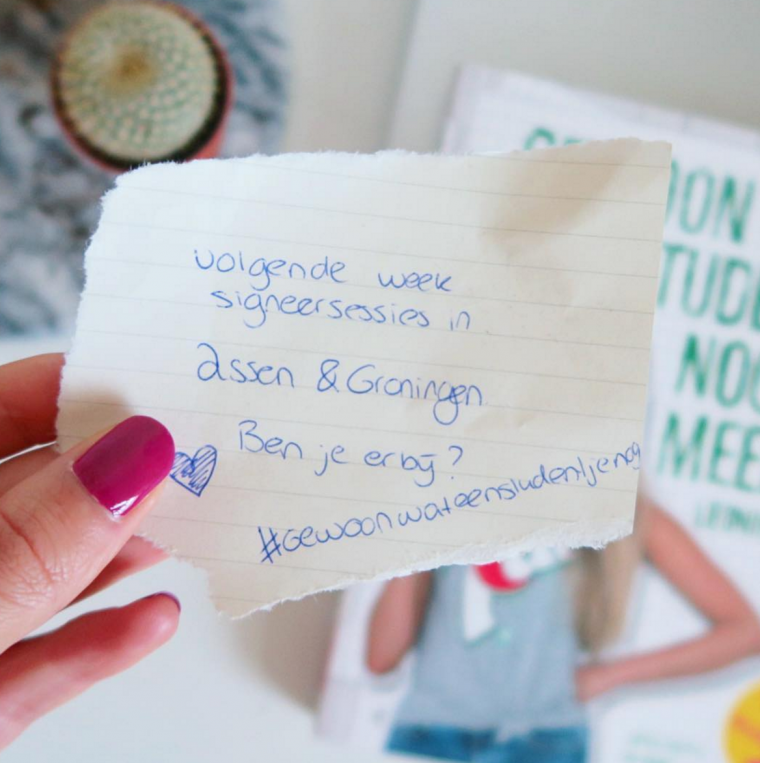 volgende week
signeersessies in
assen & Groningen
Ben je erbij?
#Gewoonwateenstudentjenog
TUDE
NOG
MEE